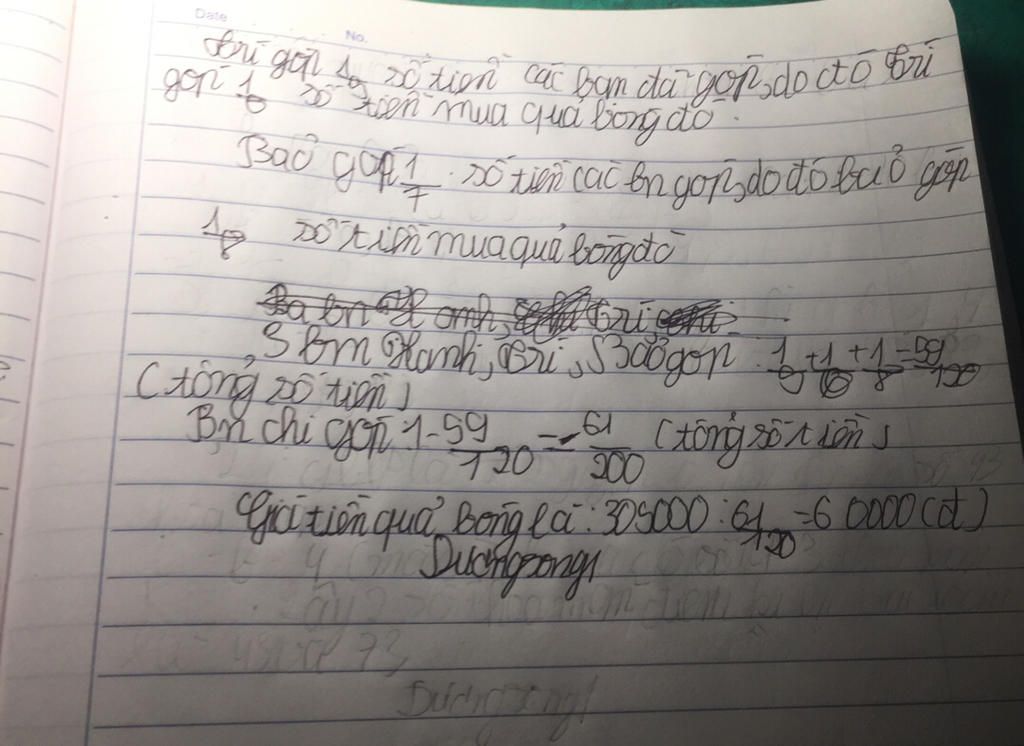 Date
No.
Trí góp 1/5 số tiền các bạn đã góp, do đó Trí
góp 1/6 số tiền mua quả bóng đó.
Bảo góp 1/7 số tiền các bn góp, do đó bảo góp
1/8 số tiền mua quả bóng đó
3 bạn Hanh, Trí, Bảo góp: 1/5 + 1/6 + 1/8 = 59/120
(tổng số tiền)
Bn chi góp: 1 - 59/120 = 61/200 (tổng số tiền)
Giá tiền quả bóng là: 305000 : 61/120 = 6 0000 (đ)
Duongzong1